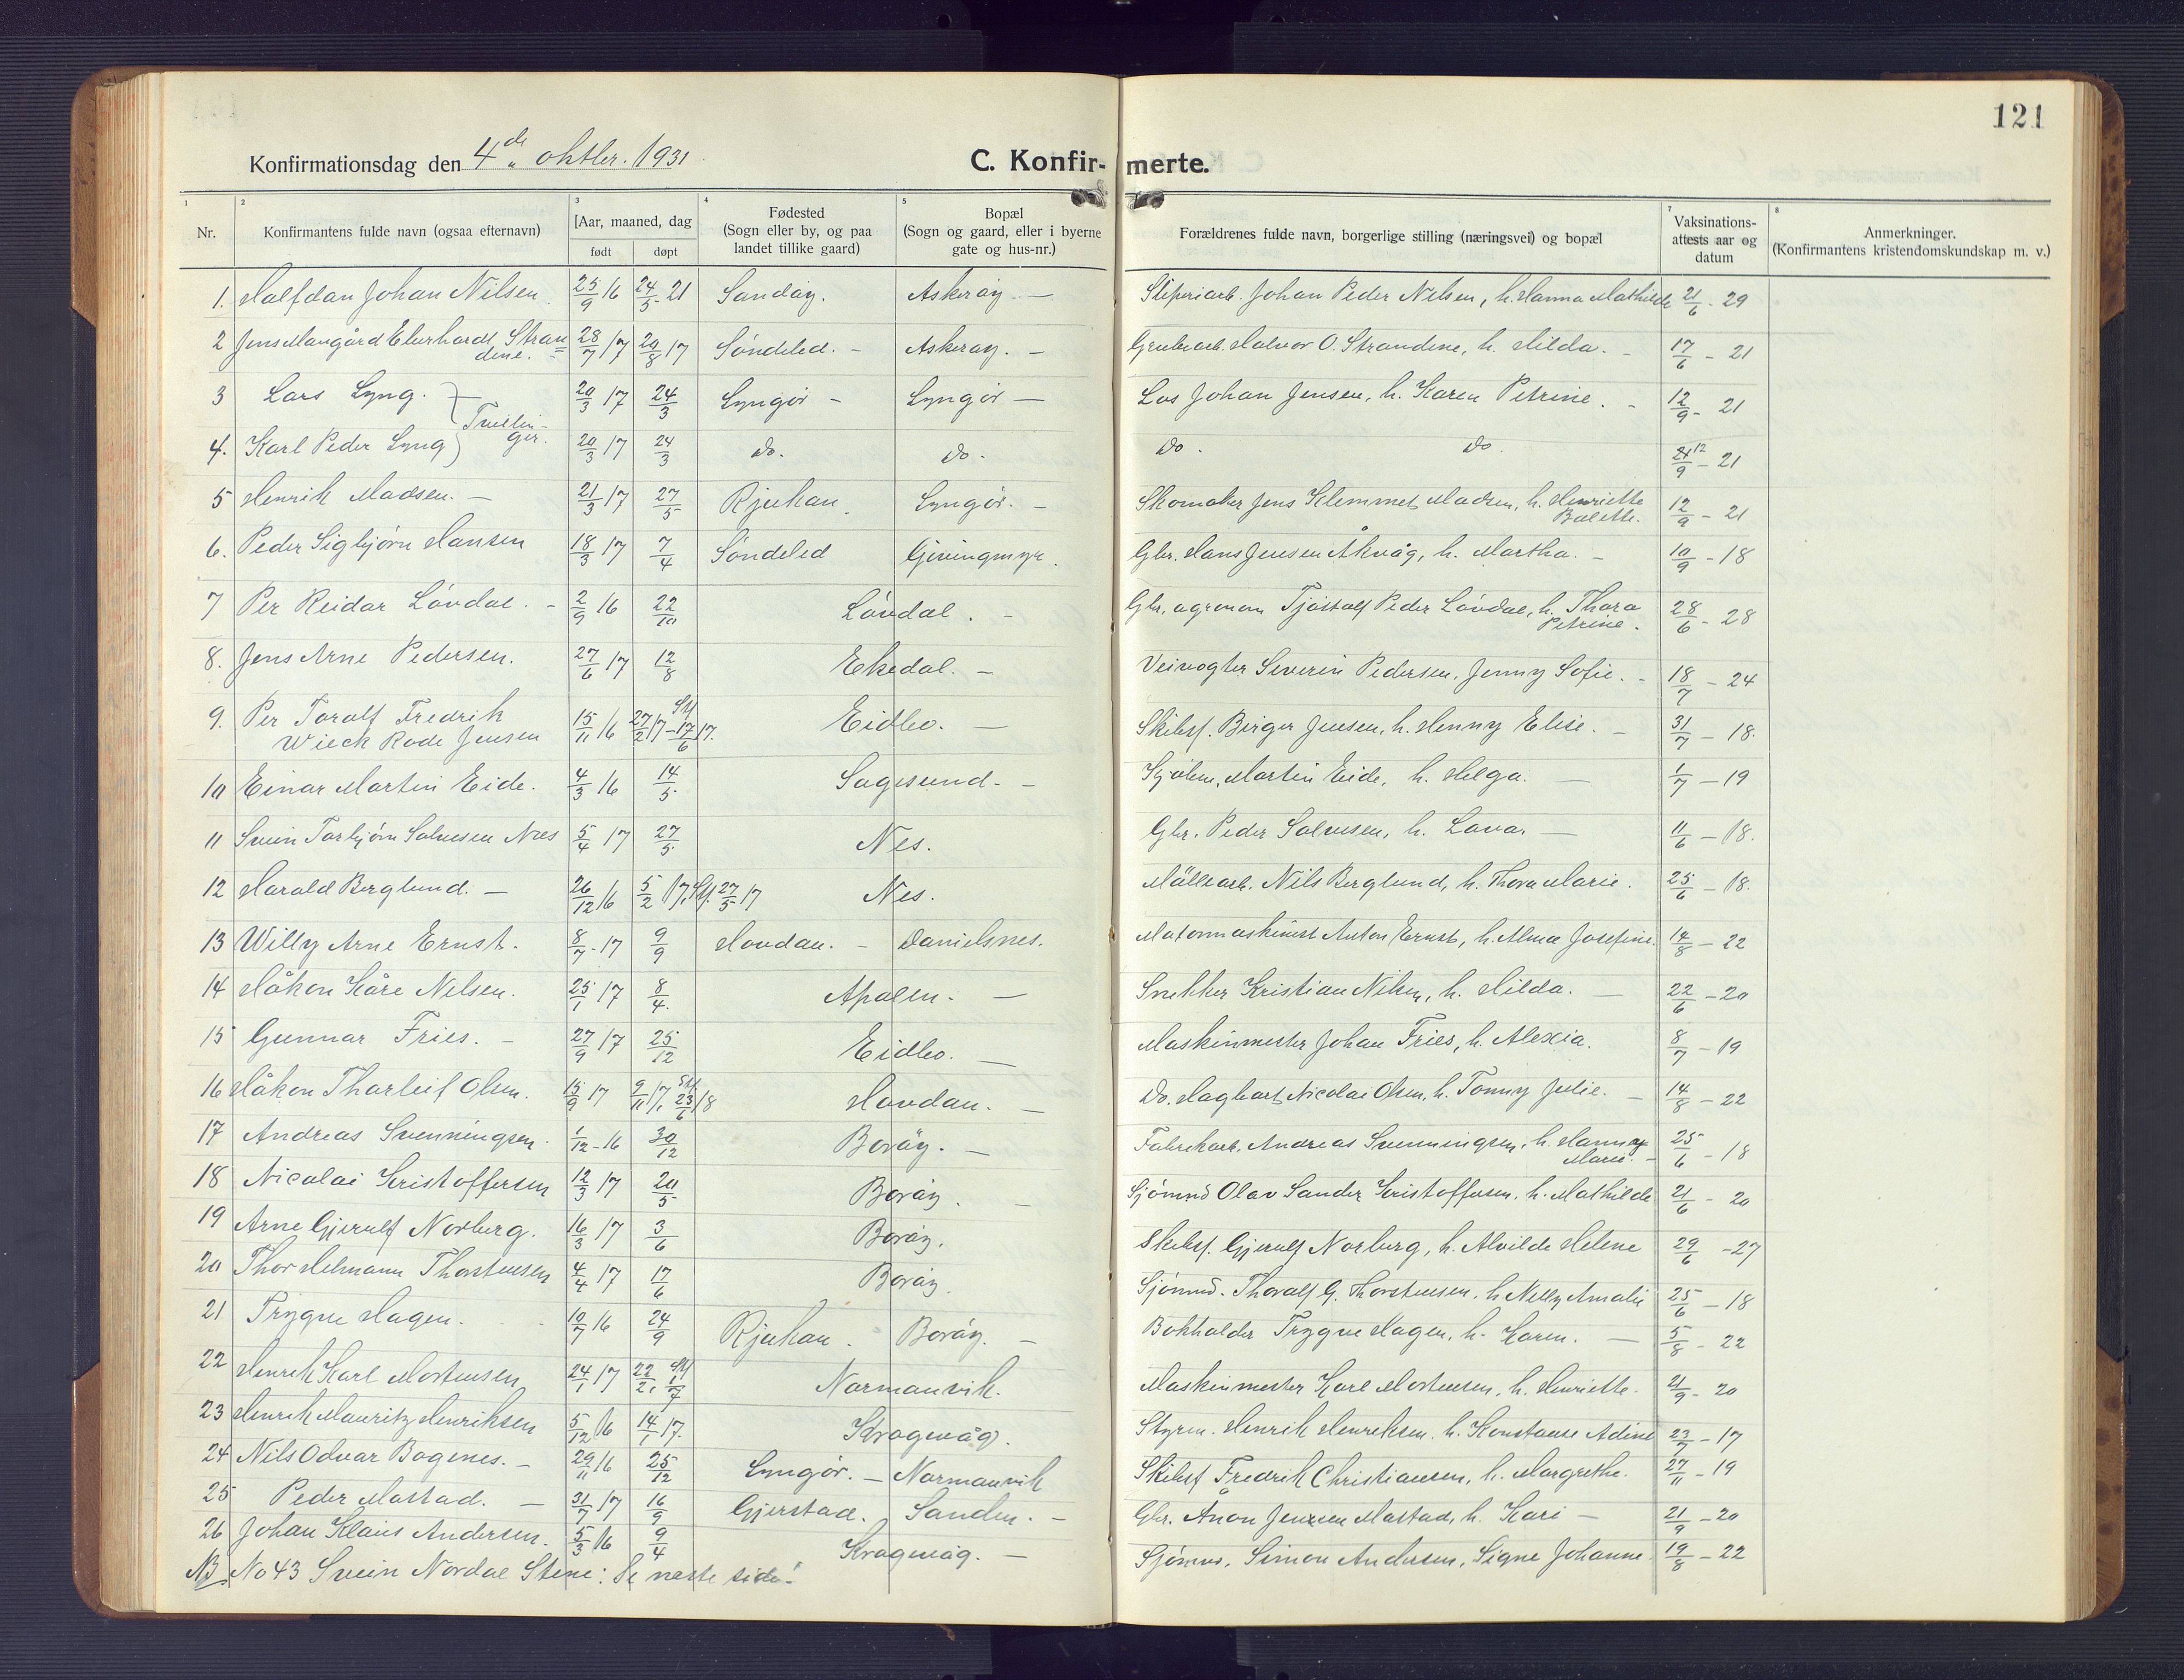 121
Konfirmationsdag den 4de oktbr. 1931
C. Konfirmerte.
1 2 3 4 5 7 8
Nr. Konfirmantens fulde navn (ogsaa efternavn) Aar, maaned, dag født døpt Fødested (Sogn eller by, og paa landet tillike gaard) Bopæl (Sogn og gaard, eller i byerne gate og hus-nr.) Forældrenes fulde navn, borgerlige stilling (næringsvei) og bopæl Vaksinations-attests aar og datum Anmerkninger. (Konfirmantens kristendomskundskap m. v.)
1. Halfdan Johan Nilsen. 25/9 16 24/5 21 Sandøy. Askerøy. — Sliperiarb. Johan Peder Nilsen, h. Hanna Mathilde 21/6 - 29
2 Jens Haugård Eberhardt Strandene. 28/7 17 20/8 17 Søndeled. - Askerøy. - Grubearb. Halvor O. Strandene, h. Hilda. - 17/6 - 21
3 Lars Lyng. } Tvillinger. 20/3 17 24/3 Lyngør - Lyngør — Los Johan Jensen, h. Karen Petrine. - 12/9 - 21
4. Karl Peder Lyng 20/3 17 24/3 do. do. do. do. 12/9 - 21
5 Henrik Madsen. — 21/3 17 27/5 Rjukan. Lyngør. - Skomaker Jens Klemmet Madsen, h. Henriette Bolette. 12/9 - 21
6. Peder Sigbjørn Hansen 18/3 17 7/4 Søndeled Gjevingmyr. Gbr. Hans Jensen Åkvåg, h. Martha. - 10/9 - 18
7 Per Reidar Løvdal. - 2/9 16 22/10 Løvdal. - Gbr, agronom Tjøstolf Peder Løvdal, h. Thora Petrine. 28/6 - 28
8. Jens Arne Pedersen. 27/6 17 12/8 Ekedal. - Veivogter Severin Pedersen, Jenny Sofie. - 18/7 - 24
9. Per Toralf Fredrik Wieck Rode Jensen 15/11 16 27/2 17 - 17/6 17. Eidbo. — Skibsf. Birger Jensen, h. Henny Elise. - 31/7 - 18.
10 Einar Martin Eide. 4/3 16 14/5 Sagesund. - Martin Eide, h. Helga. — 1/7 - 19
11 Svein Torbjørn Salvesen Næs 5/4 17 27/5 Nes. Gbr. Peder Salvesen, h. Lova. — 11/6 - 18.
12 Harald Berglund. — 26/12 16 5/2 17, 27/5 17 Nes. Møllearb. Nils Berglund, h. Thora Marie. 25/6 - 18.
13 Willy Arne Ernst. 8/7 - 17 9/9 Hovdan. - Danielsnes. Motormaskinist Anton Ernst, h. Alma Josefine. 14/8 - 22
14 Håkon Kåre Nelsen. 25/1 17 8/4. Apalen. — Snekker Kristian Nilsen, h. Hilda. — 22/6 - 20
15 Gunnar Fries. - 27/9 17 25/12 Eidbo. — Maskinmester Johan Fries, h. Alexia. 8/7 - 19
16 Håkon Tharleif Olsen. 15/9 17 9/11 17, 23/6 18 Hovdan. — Do. Dagbart Nicolai Olsen, h. Tonny Julie. — 14/8 - 22
17 Andreas Svenningsen. 1/12 - 16 30/12 Borøy. — Fabrikarb. Andreas Svenningsen, h. Hanny Marie. - 25/6 - 18
18 Nicolai Kristoffersen 12/3 17 20/5 Borøy. - Sjømnd Olav Sander Kristoffersen, h. Mathilde 21/6 - 20
19 Arne Gjerulf Norberg. 16/3 17 3/6 Borøy. Skibsf. Gjerulf Norberg, h. Alvilde Helene 29/6 - 27
20 Thor Helmann Thorstensen 4/4 17 17/6 Borøy. Sjømnd. Thoralf G. Thorstensen, h Nelly Amalie 25/6 - 18
21 Trygve Hagen. 10/7 16 24/9 Rjukan. Borøy. - Bokholder Trygve Hagen, h. Karen. — 5/8 - 22
22 Henrik Karl Mortensen 24/1 17 22/2, 1/7 Normanvik. Maskinmester Karl Mortensen, h. Henriette. 21/9 - 20
23 Henrik Mauritz Henriksen 5/12 16 14/1 17. Kragevåg. Styrm. Henrik Henriksen, h. Konstanse Adine 23/7 - 17
24 Nils Odvar Bogenes. - 29/11 16 25/12 Lyngør. - Normanvik Skibsf Fredrik Christiansen, h. Margrethe. 27/11 - 19
25 Peder Mostad. — 31/7 17 16/9 Gjerstad. Sanden. - Gbr. Ånon Jensen Mostad, h. Kari — 21/9 - 20
26 Johan Klaus Andersen. 5/3 16 9/4 Kragevåg. — Sjømns. Simon Andersen, Signe Johanne. 19/8 - 22
NB No 43 Svein Nordal Stene: Se næste side!